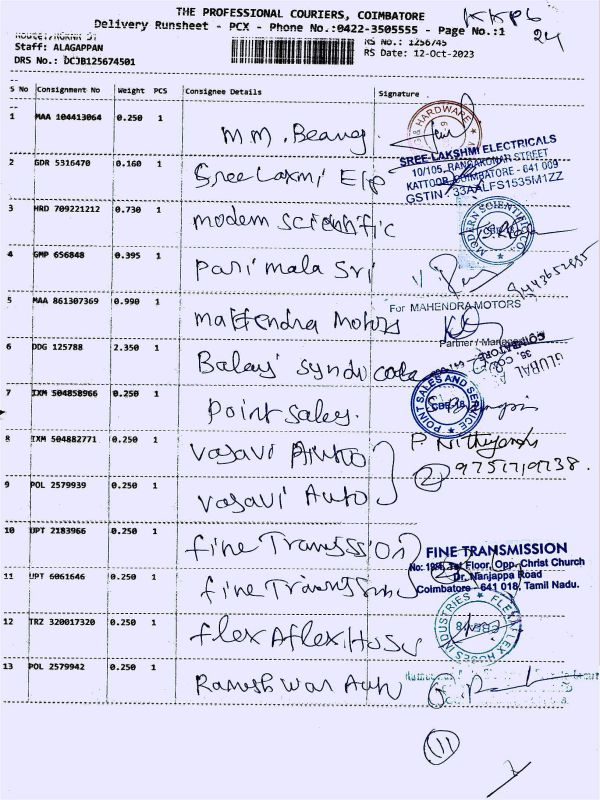 THE PROFESSIONAL COURIERS, COIMBATORE
KKPL
Delivery Runsheet - PCX - Phone No.:0422-3505555 - Page No.:1
24
Staff: ALAGAPPAN
RS No.: 1256745
DRS No.: DCJB125674501
RS Date: 12-Oct-2023
S No Consignment No Weight PCS Consignee Details Signature
1 MAA 104413064 0.250 1 M.M. Beang
& HARDWARE
2 GDR 5316470 0.160 1 Sree Laxmi Elp
SREE LAKSHMI ELECTRICALS
10/105, RANGAKONAR STREET
KATTOOR, COIMBATORE - 641 009
GSTIN : 33AALFS1535M1ZZ
3 HRD 709221212 0.730 1 modern scientific
MODERN SCIENTIFIC CO.
4 GMP 656848 0.395 1 Pari mala Sri
9443652595
5 MAA 861307369 0.990 1 mahendra Motors
For MAHENDRA MOTORS
Partner / Manager
6 DDG 125788 2.350 1 Balaji syndicate
COIMBATORE
7 IXM 504858966 0.250 1 Point Sales.
POINT SALES AND SERVICE
CBE-18
8 IXM 504882771 0.250 1 Vasavi Auto
9 POL 2579939 0.250 1 Vasavi Auto
2
10 UPT 2183966 0.250 1 fine Transssion
11 UPT 6061646 0.250 1 fine Transsmi
FINE TRANSMISSION
1st Floor, Opp. Christ Church
Dr. Nanjappa Road
Coimbatore - 641 018, Tamil Nadu.
12 TRZ 320017320 0.250 1 flex Aflex Hose
FLEXAFLEX HOSES INDUSTRIES
13 POL 2579942 0.250 1 Ramesh war Auto
11